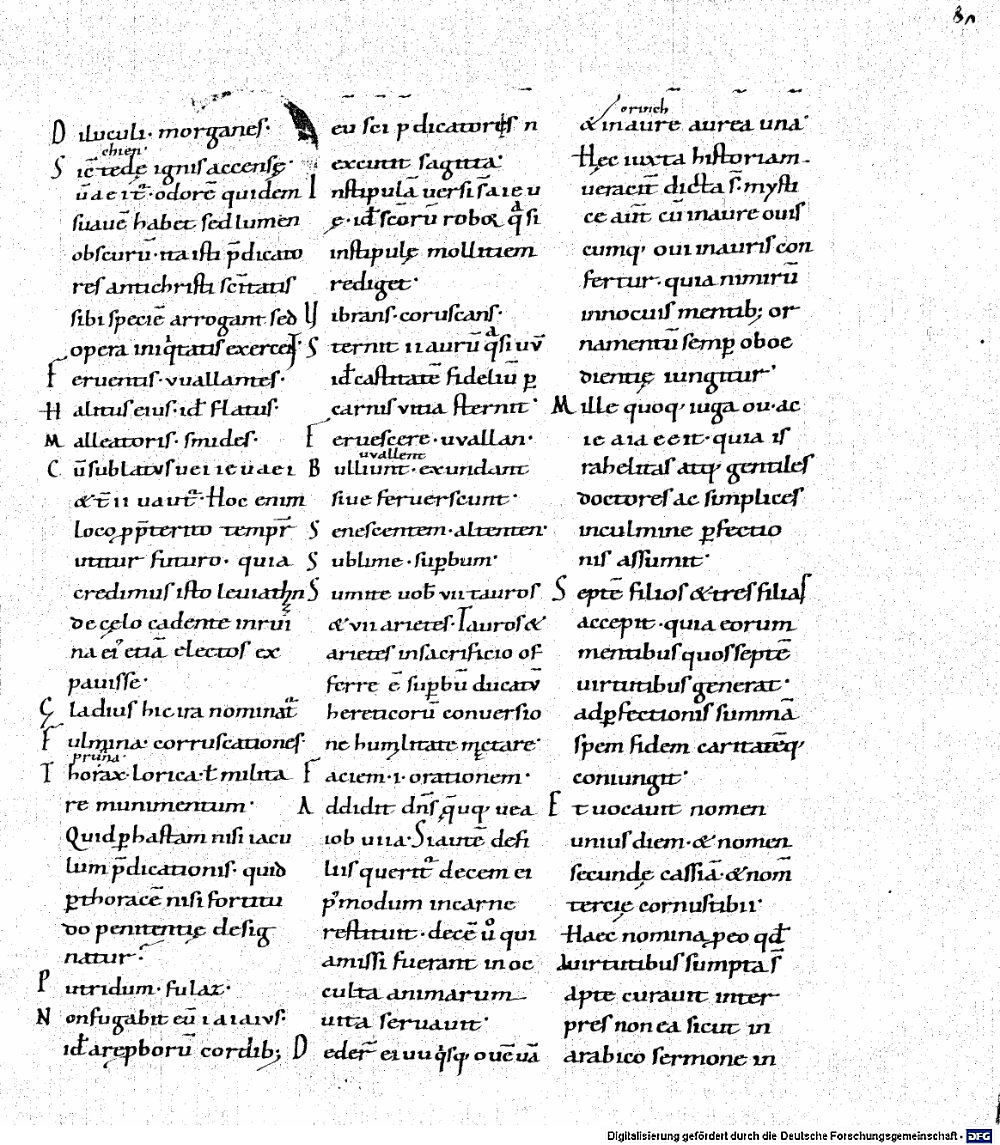 8n
Diluculi· morganes·
chien·
Sic̄ tedę ignis accensę·
ūaeit̄·odorē quidem
suauē habet sed lumen
obscurū·ita isti p̄dicato
res antichristi scītatis
sibi speciē arrogant sed
opera iniq̇tatis exercet·
Feruentis·vuallantes·
Halitus eius·id Flatus·
Malleatoris· smides·
Cū sublatus ueiieuaei
&t̄ii uaut̄· Hoc enim
loco pp̄terito tempr̄
utitur futuro· quia
credimus isto leuiathn
de cęlo cadente inrui
na ei' etiā electos ex
pauisse·
Gladius hic ira nominat̄
Fulmina· corruscationes·
pruna·
Thorax·lorica·ł milita
re munimentum·
Quid phastam nisi iacu
lum p̄dicationis· quid
pthoracē nisi fortitu
do penitentię desig
natur·
Putridum· fulaz·
Non fugabit eū ıaıaıvs·
id arepborū cordib;
eu sci pdicatores n
excutit sagitta·
Instipulā uersi s̄aieu
ę·id scōrū robor q̄si
instipulę mollitiem
rediget·
Uibrans·coruscans·
Sternit ii aurū q̄si uv̄
id castitatē fideliū p
carnis vitia sternit·
Feruescere·uvallan·
uvallent
Bulliunt·exundant
siue feruerscunt·
Senescentem·altenten·
Sublime·supbum·
Sumite uob vii tauros
& vii arietes· Tauros &
arietes insacrificio of
ferre ē supbū ducatv̄
hereticorū conuersio
ne humilitate męctare·
Faciem·i·orationem·
Addidit dn̄s q̄uq· uea
iob uiia· Siautē defi
liis querit̄ decem ei
p'modum incarne
restituit·decē ů qui
amissi fuerant in oc
culta animarum
uita seruauit·
Deder̄ ei uuq̇sq ouēuā
orinch
& inaure aurea una·
Hęc iuxta historiam
ueracit̄ dicta s̄·mysti
ce aūt cū inaure ouis
cumq· oui inauris con
fertur·quia nimirū
innocuis mentib; or
namentū semp oboe
dientię iungitur·
Mille quoq· iuga ou·ac
ie aia e eit·quia is
rahelitas atq gentiles
doctores ac simplices
inculmine pfectio
nis assumit·
Septē filios & tres filias
accepit·quia eorum
mentibus quos septē
uirtutibus generat·
adpfectionis summā
spem fidem caritatēq·
coniungit·
Et uocauit nomen
unius diem·& nomen
secundę cassiā·& nom̄
tercię cornustibii·
Haec nomina peo qd
auirtutibus sumpta s̄
apte curauit inter
pres non ea sicut in
arabico sermone in
Digitalisierung gefördert durch die Deutsche Forschungsgemeinschaft - DFG